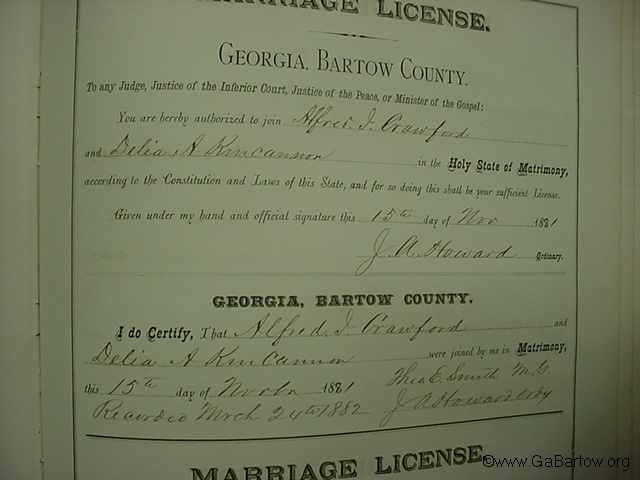 MARRIAGE LICENSE.
GEORGIA, BARTOW COUNTY.
To any Judge, Justice of the Inferior Court, Justice of the Peace, or Minister of the Gospel:
You are hereby authorized to join Alfred J. Crawford
and Delia A Kincannon in the Holy State of Matrimony,
according to the Constitution and Laws of this State, and for so doing this shall be your sufficient License.
Given under my hand and official signature this 15th day of Nov 1881
J. A. Howard Ordinary.
GEORGIA, BARTOW COUNTY.
I do Certify, That Alfred J Crawford and
Delia A Kincannon were joined by me in Matrimony,
this 15th day of 1881 Theo E. Smith M.G.
Recorded Mrch 24th 1882 J A Howard Ordy
MARRIAGE LICENSE.
©www.GaBartow.org